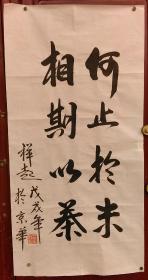 何止於米
相期以茶
戊戌年
祥起
於京華